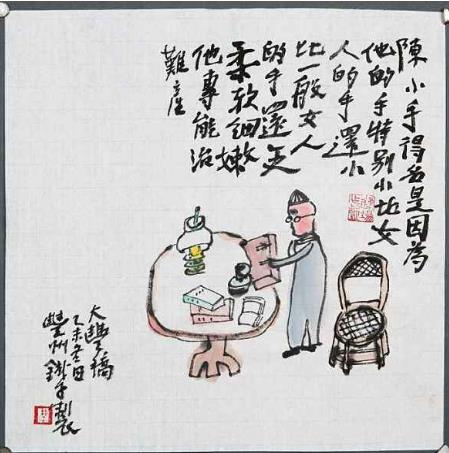 陳小手得名是因為
他的手特别小比女
人的手還小
比一般女人
的手還更
柔軟細嫩
他專能治
難產
大豐橋
乙未冬日
豐州鐵子製